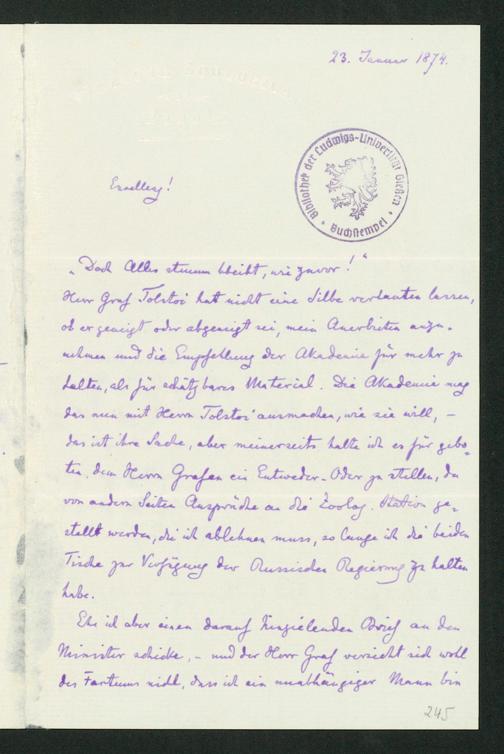 23. Januar 1874.
Bibliothek der Ludwigs-Universität Gießen
Buchstempel
Excellenz!
„Doch Alles stumm bleibt, wie zuvor!“
Herr Graf Tolstoi hat nicht eine Silbe verlauten lassen,
ob er geneigt oder abgeneigt sei, mein Anerbieten anzu-
nehmen und die Empfehlung der Akademie für mehr zu
halten, als für schätzbares Material. Die Akademie mag
das nun mit Herrn Tolstoi ausmachen, wie sie will, –
das ist ihre Sache, aber meinerseits halte ich es für gebo-
ten, dem Herrn Grafen ein Entweder-Oder zu stellen, da
von andern Seiten Ansprüche an die Zoolog. Station ge-
stellt werden, die ich ablehnen muss, so lange ich die beiden
Tische zur Verfügung der Russischen Regierung zu halten
habe.
Ehe ich aber einen darauf hinzielenden Brief an den
Minister schicke, – und der Herr Graf versieht sich wohl
des Factums nicht, dass ich ein unabhängiger Mann bin
245